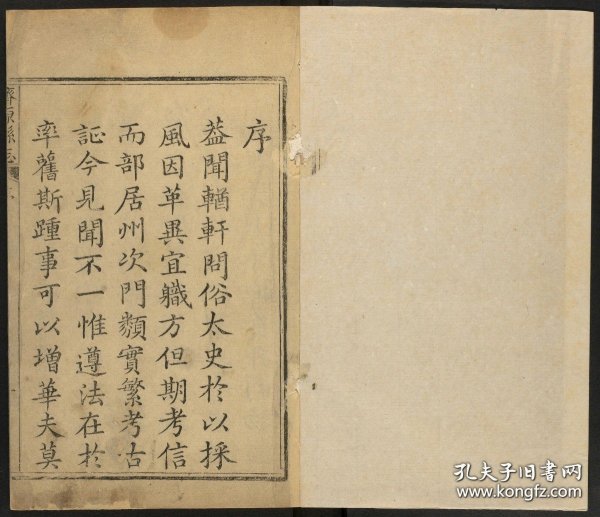 序
葢聞輶軒問俗太史於以採
風因革異宜職方但期考信
而部居州次門類實繁考古
証今見聞不一惟遵法在於
率舊斯踵事可以增華夫莫
濟源縣志
孔夫子旧书网
www.kongfz.com